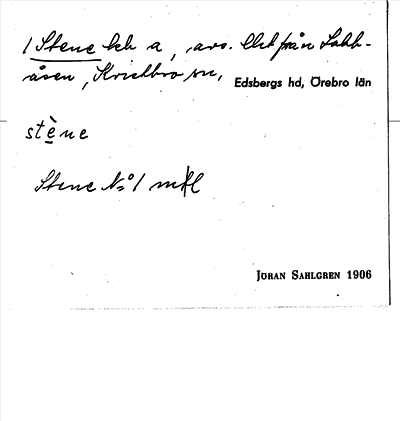 1 Stene hek a, avs. Utt från Labb-
åsen, Kvistbro sn, Edsbergs hd, Örebro län
stène
Stene No 1 mtl
JÖRAN SAHLGREN 1906